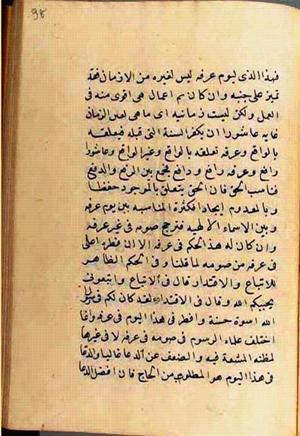 ٩٨
فبهذا الذي ليوم عرفه ليس لغيره من الازمان فقد
تميز على جنسه وان كان ثم اعمال هي اقوى منه في
العمل ولكن ليست زمانيه اي ما هي لعين الزمان
غايه عاشورا ان يكفر السنة التي قبله فيعلقه
بالواقع وعرفه تعلقه بالواقع وغير الواقع وعاشورا
رافع وعرفه رافع ودافع فجمع بين الرفع والدفع
فناسب الحق فان الحق يتعلق بالموجود حفظا
وبالمعدوم ايجادا فكثرة المناسبه بين يوم عرفه
وبين الاسماء الالهية فترجح صومه في غير عرفه
وان كان له هذا الحكم في عرفه الا ان فطره اعلى
في عرفه من صومه لما قلناه وفي الحكم الظاهر
للاتباع والاقتداء قال في الاتباع واتبعوني
يحببكم الله وقال في الاقتداء لقد كان لكم في رسول
الله اسوة حسنة وافطر في هذا اليوم في عرفه وانما
اختلف علماء الرسوم في صومه في عرفه لا في غيرها
لمظنه المشقة فيه والضعف عن الدعا غالبا والدعا
في هذا اليوم هو المطلوب من الحاج فان افضل الدعا